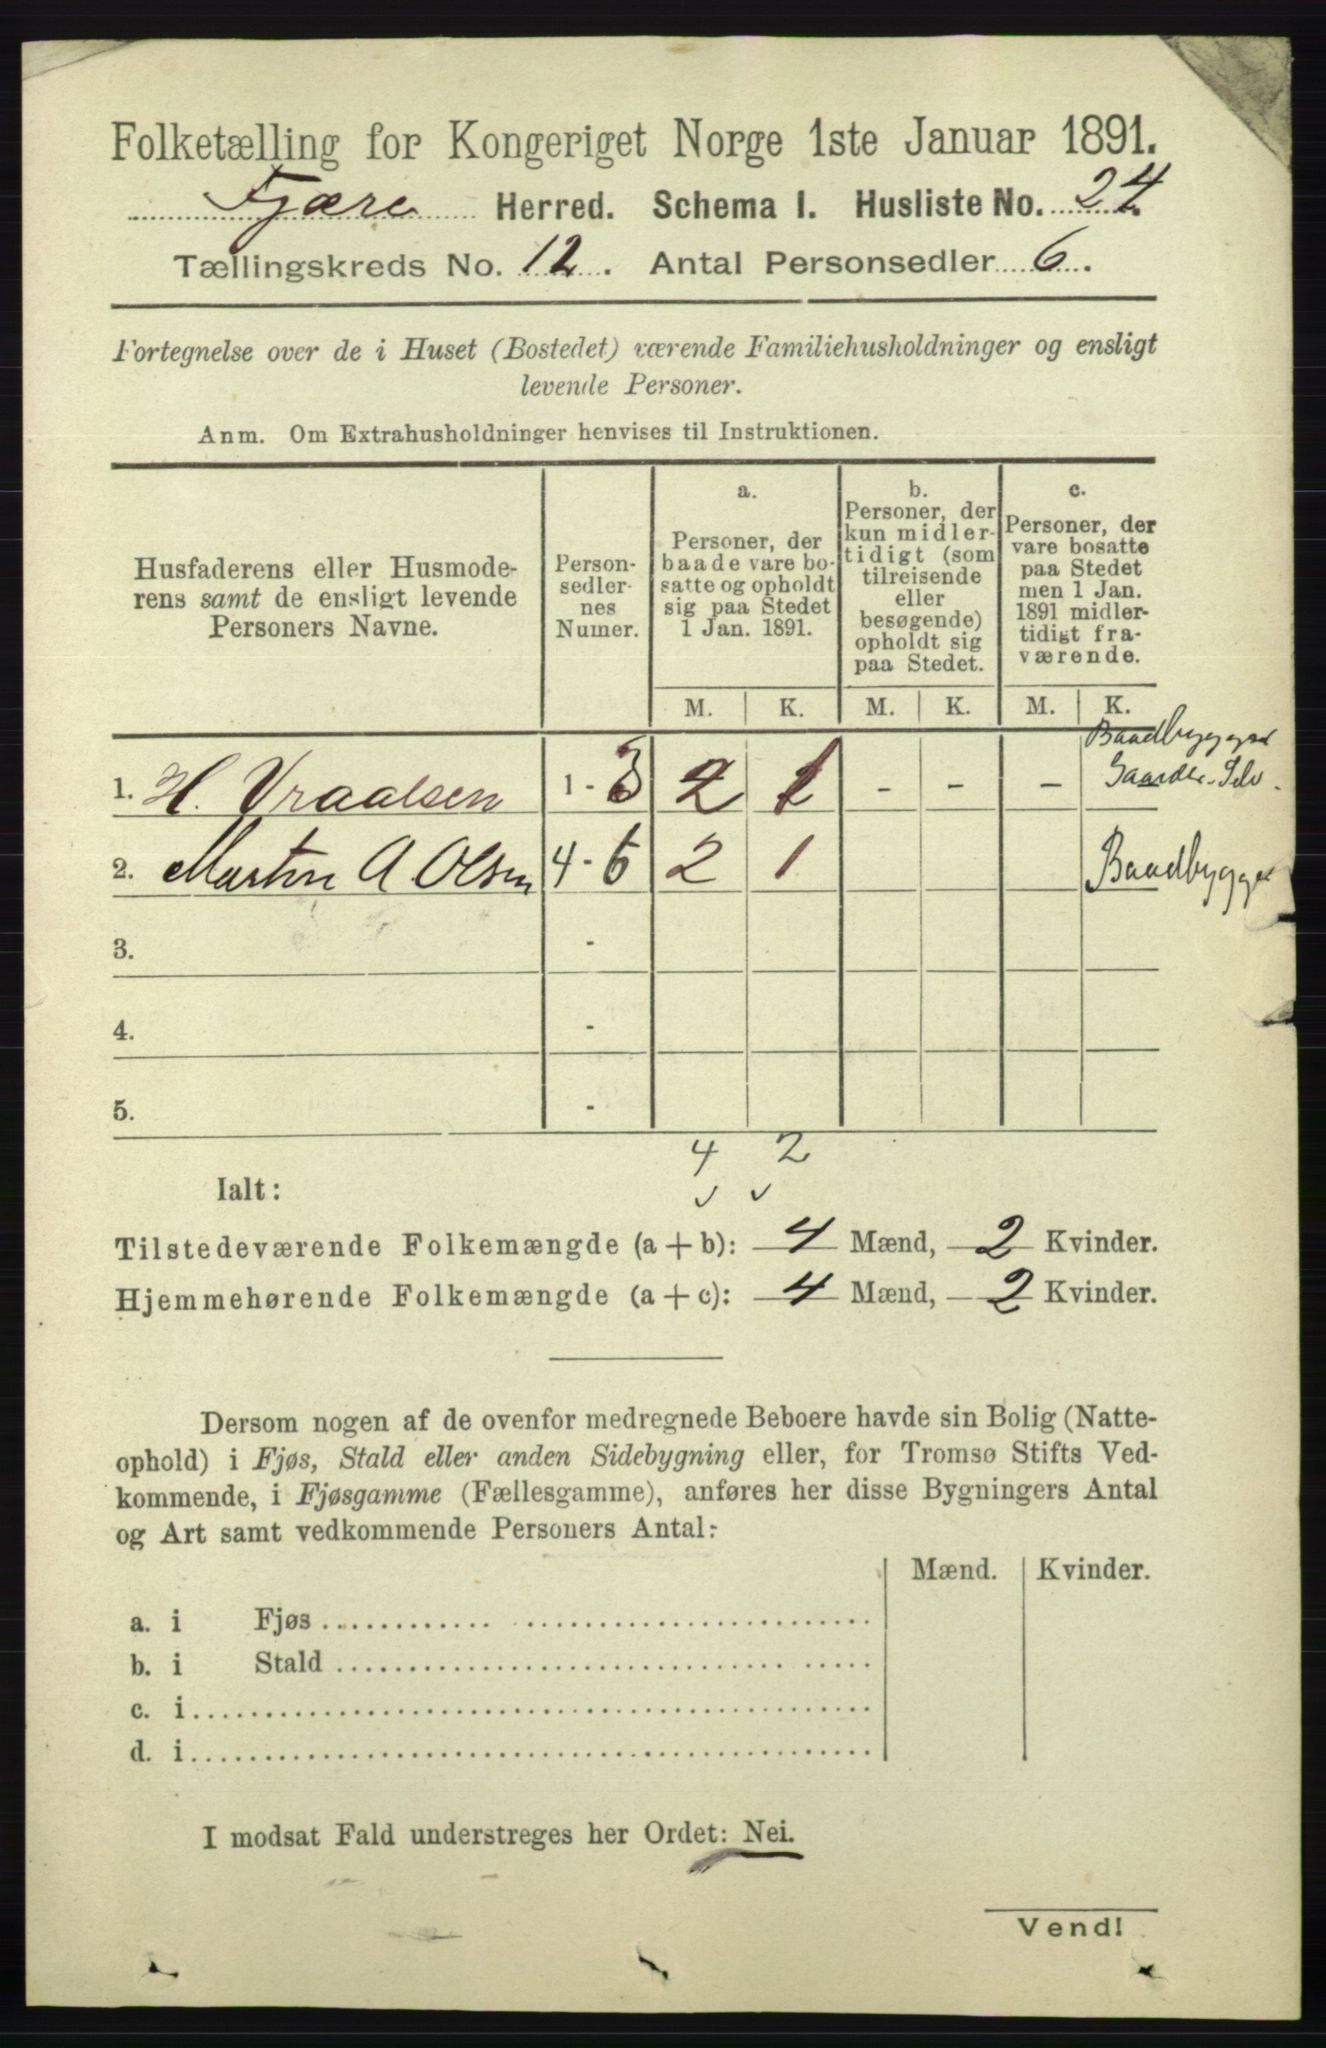 Folketælling for Kongeriget Norge 1ste Januar 1891.
Fjære Herred. Schema I. Husliste No. 24
Tællingskreds No. 12. Antal Personsedler 6.
Fortegnelse over de i Huset (Bostedet) værende Familiehusholdninger og ensligt
levende Personer.
Anm. Om Extrahusholdninger henvises til Instruktionen.
Husfaderens eller Husmode-
rens samt de ensligt levende
Personers Navne.
Person-
sedler-
nes
Numer.
a.
Personer, der
baade vare bo-
satte og opholdt
sig paa Stedet
1 Jan. 1891.
b.
Personer, der
kun midler-
tidigt (som
tilreisende
eller
besøgende)
opholdt sig
paa Stedet.
c.
Personer, der
vare bosatte
paa Stedet
men 1 Jan.
1891 midler-
tidigt fra-
værende.
M. K. M. K. M. K.
Baadbygger
1. H. Vraalsen 1 - 3 2 1 - - - Gaardbr. Selv.
2. Martin A Olsen 4 - 6 2 1 Baadbygger
3. -
4. -
5. -
4 2
Ialt:
Tilstedeværende Folkemængde (a + b): 4 Mænd, 2 Kvinder.
Hjemmehørende Folkemængde (a + c): 4 Mænd, 2 Kvinder.
Dersom nogen af de ovenfor medregnede Beboere havde sin Bolig (Natte-
ophold) i Fjøs, Stald eller anden Sidebygning eller, for Tromsø Stifts Ved-
kommende, i Fjøsgamme (Fællesgamme), anføres her disse Bygningers Antal
og Art samt vedkommende Personers Antal:
Mænd. Kvinder.
a. i Fjøs
b. i Stald
c. i
d. i
I modsat Fald understreges her Ordet: Nei.
Vend!